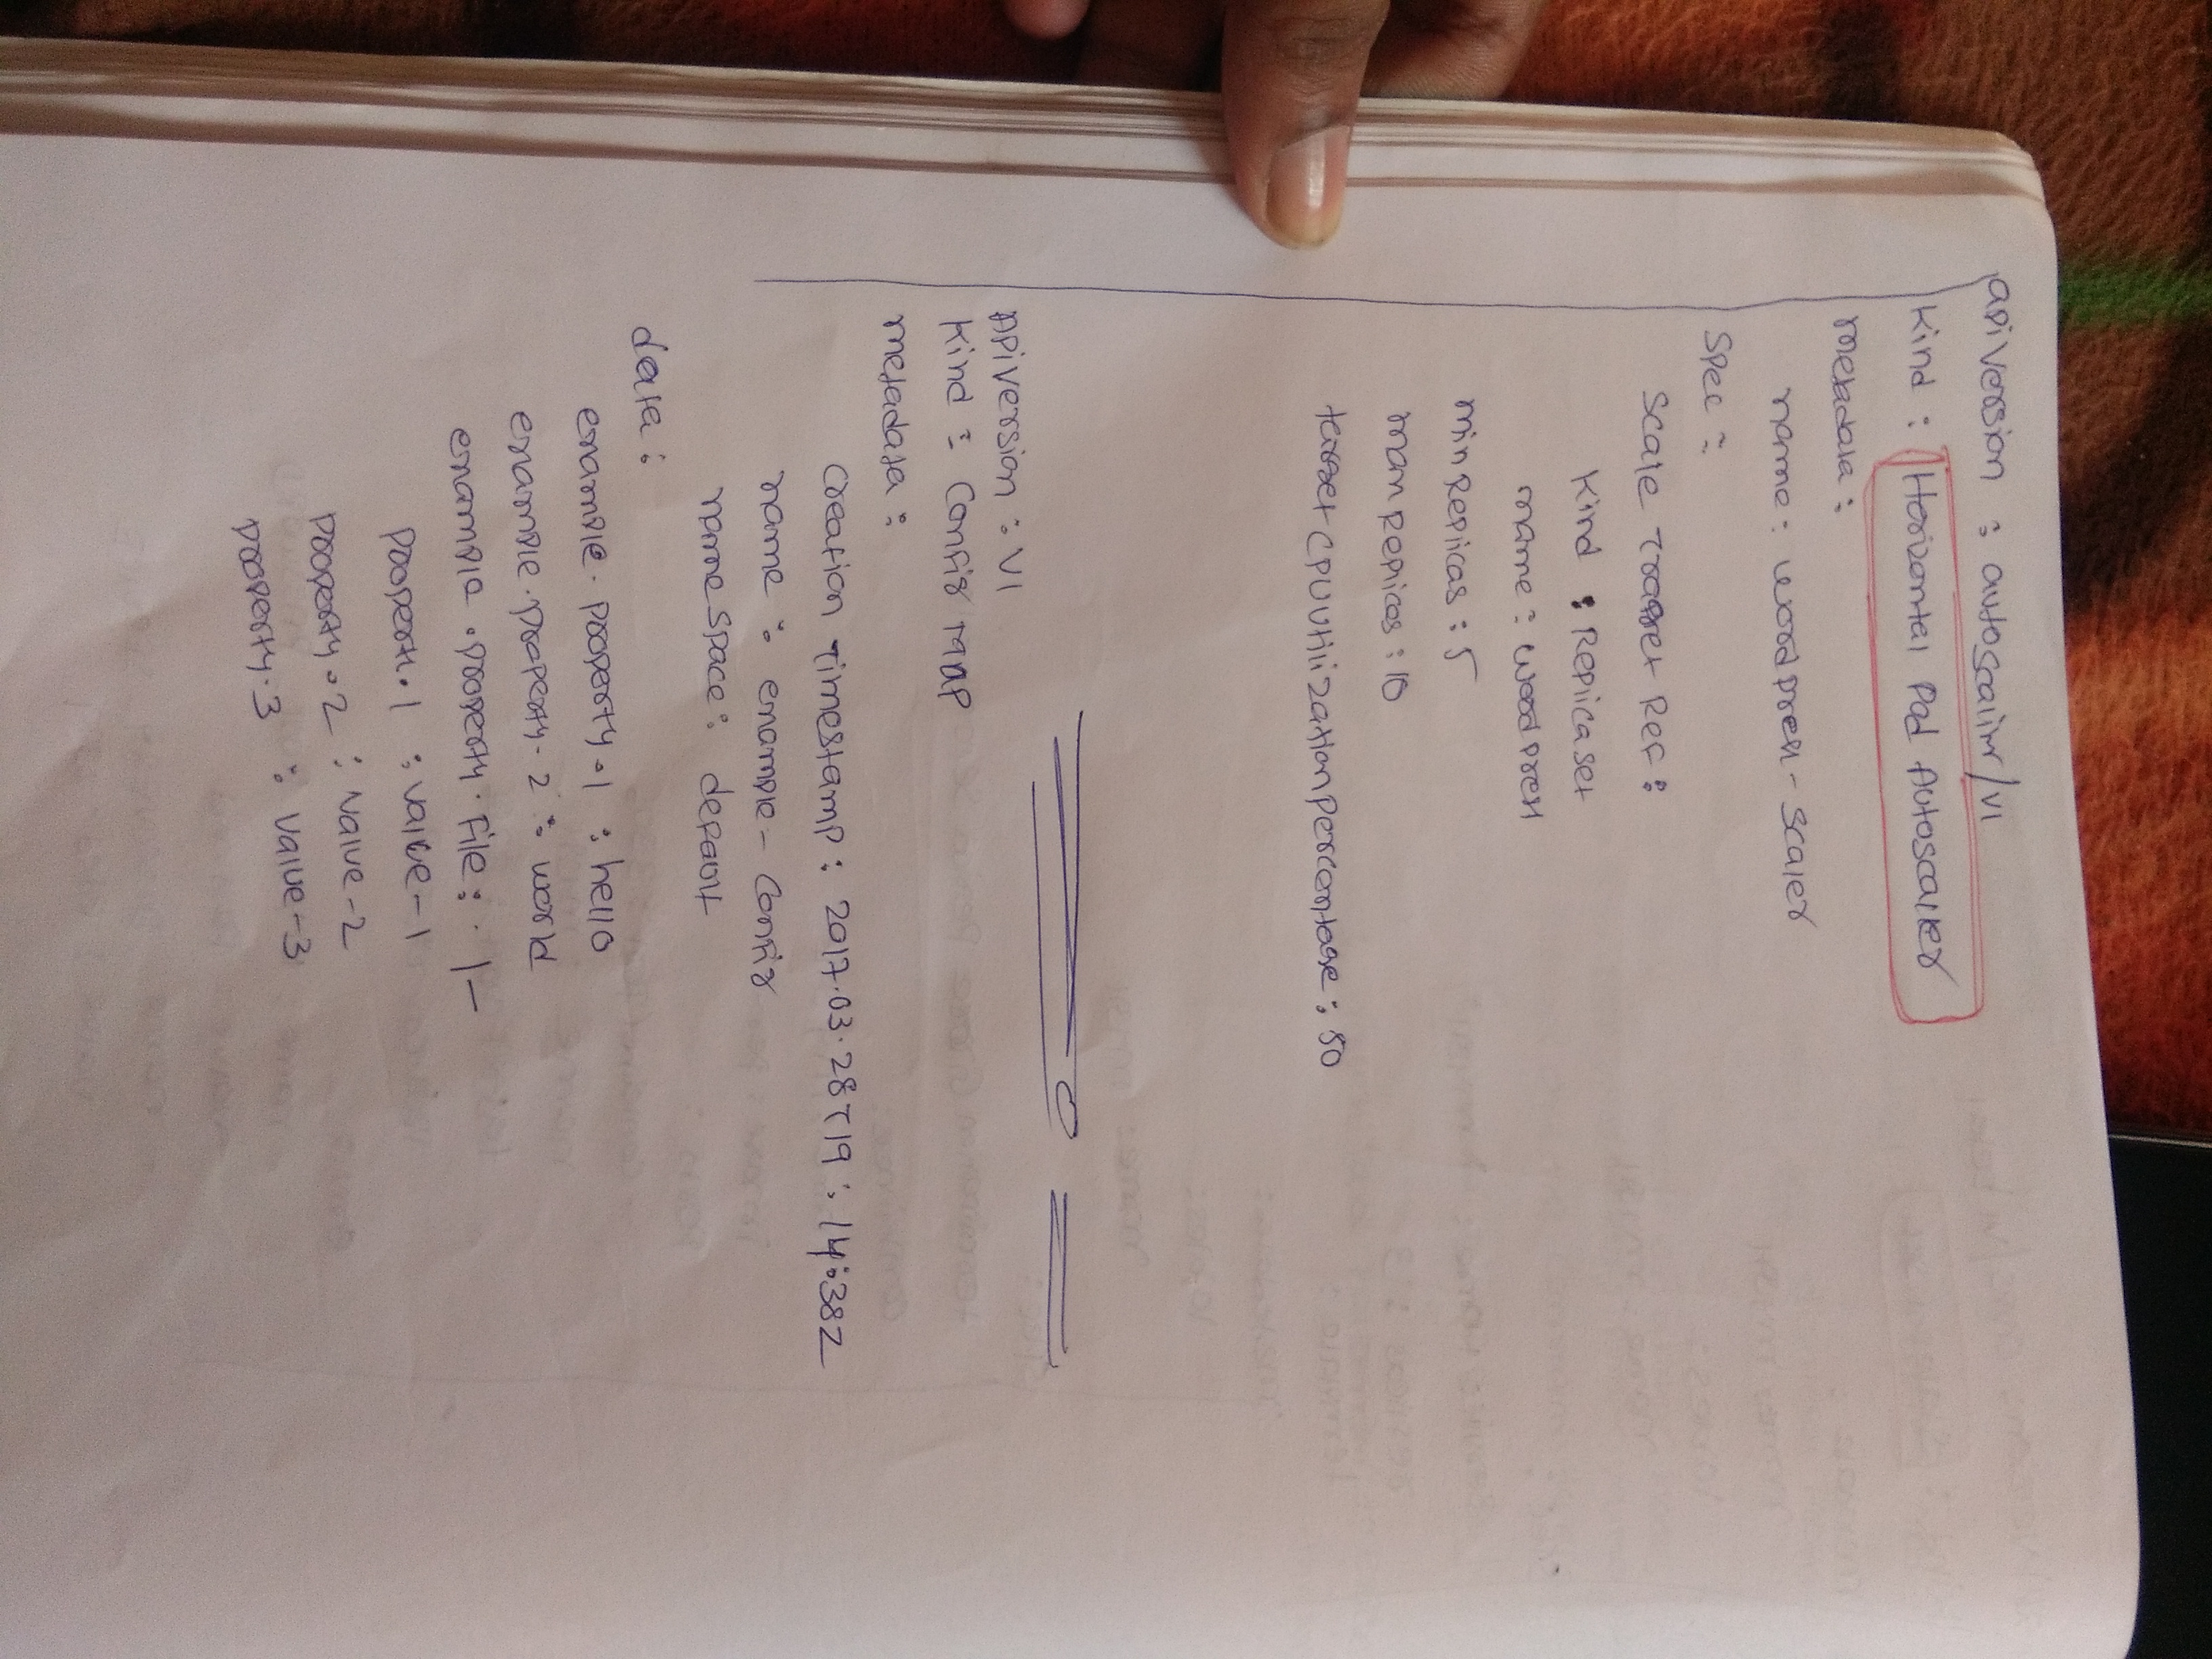 apiversion : autoscaling/v1
Kind : Horizontal Pod Autoscaller
metadata :
name : wordpress-scaler
Spec :
Scale Target Ref :
Kind : Replicaset
name : wordpress
minReplicas : 5
maxReplicas : 10
targetCPUUtilizationPercentage : 50
Apiversion : V1
Kind : Config Map
metadata :
Creation Timestamp : 2017.03.28T19 : 14:38Z
name : example-Config
namespace : default
data :
example.property.1 : hello
example.property.2 : world
example.property.File : |-
property.1 : value-1
property.2 : value-2
property.3 : value-3